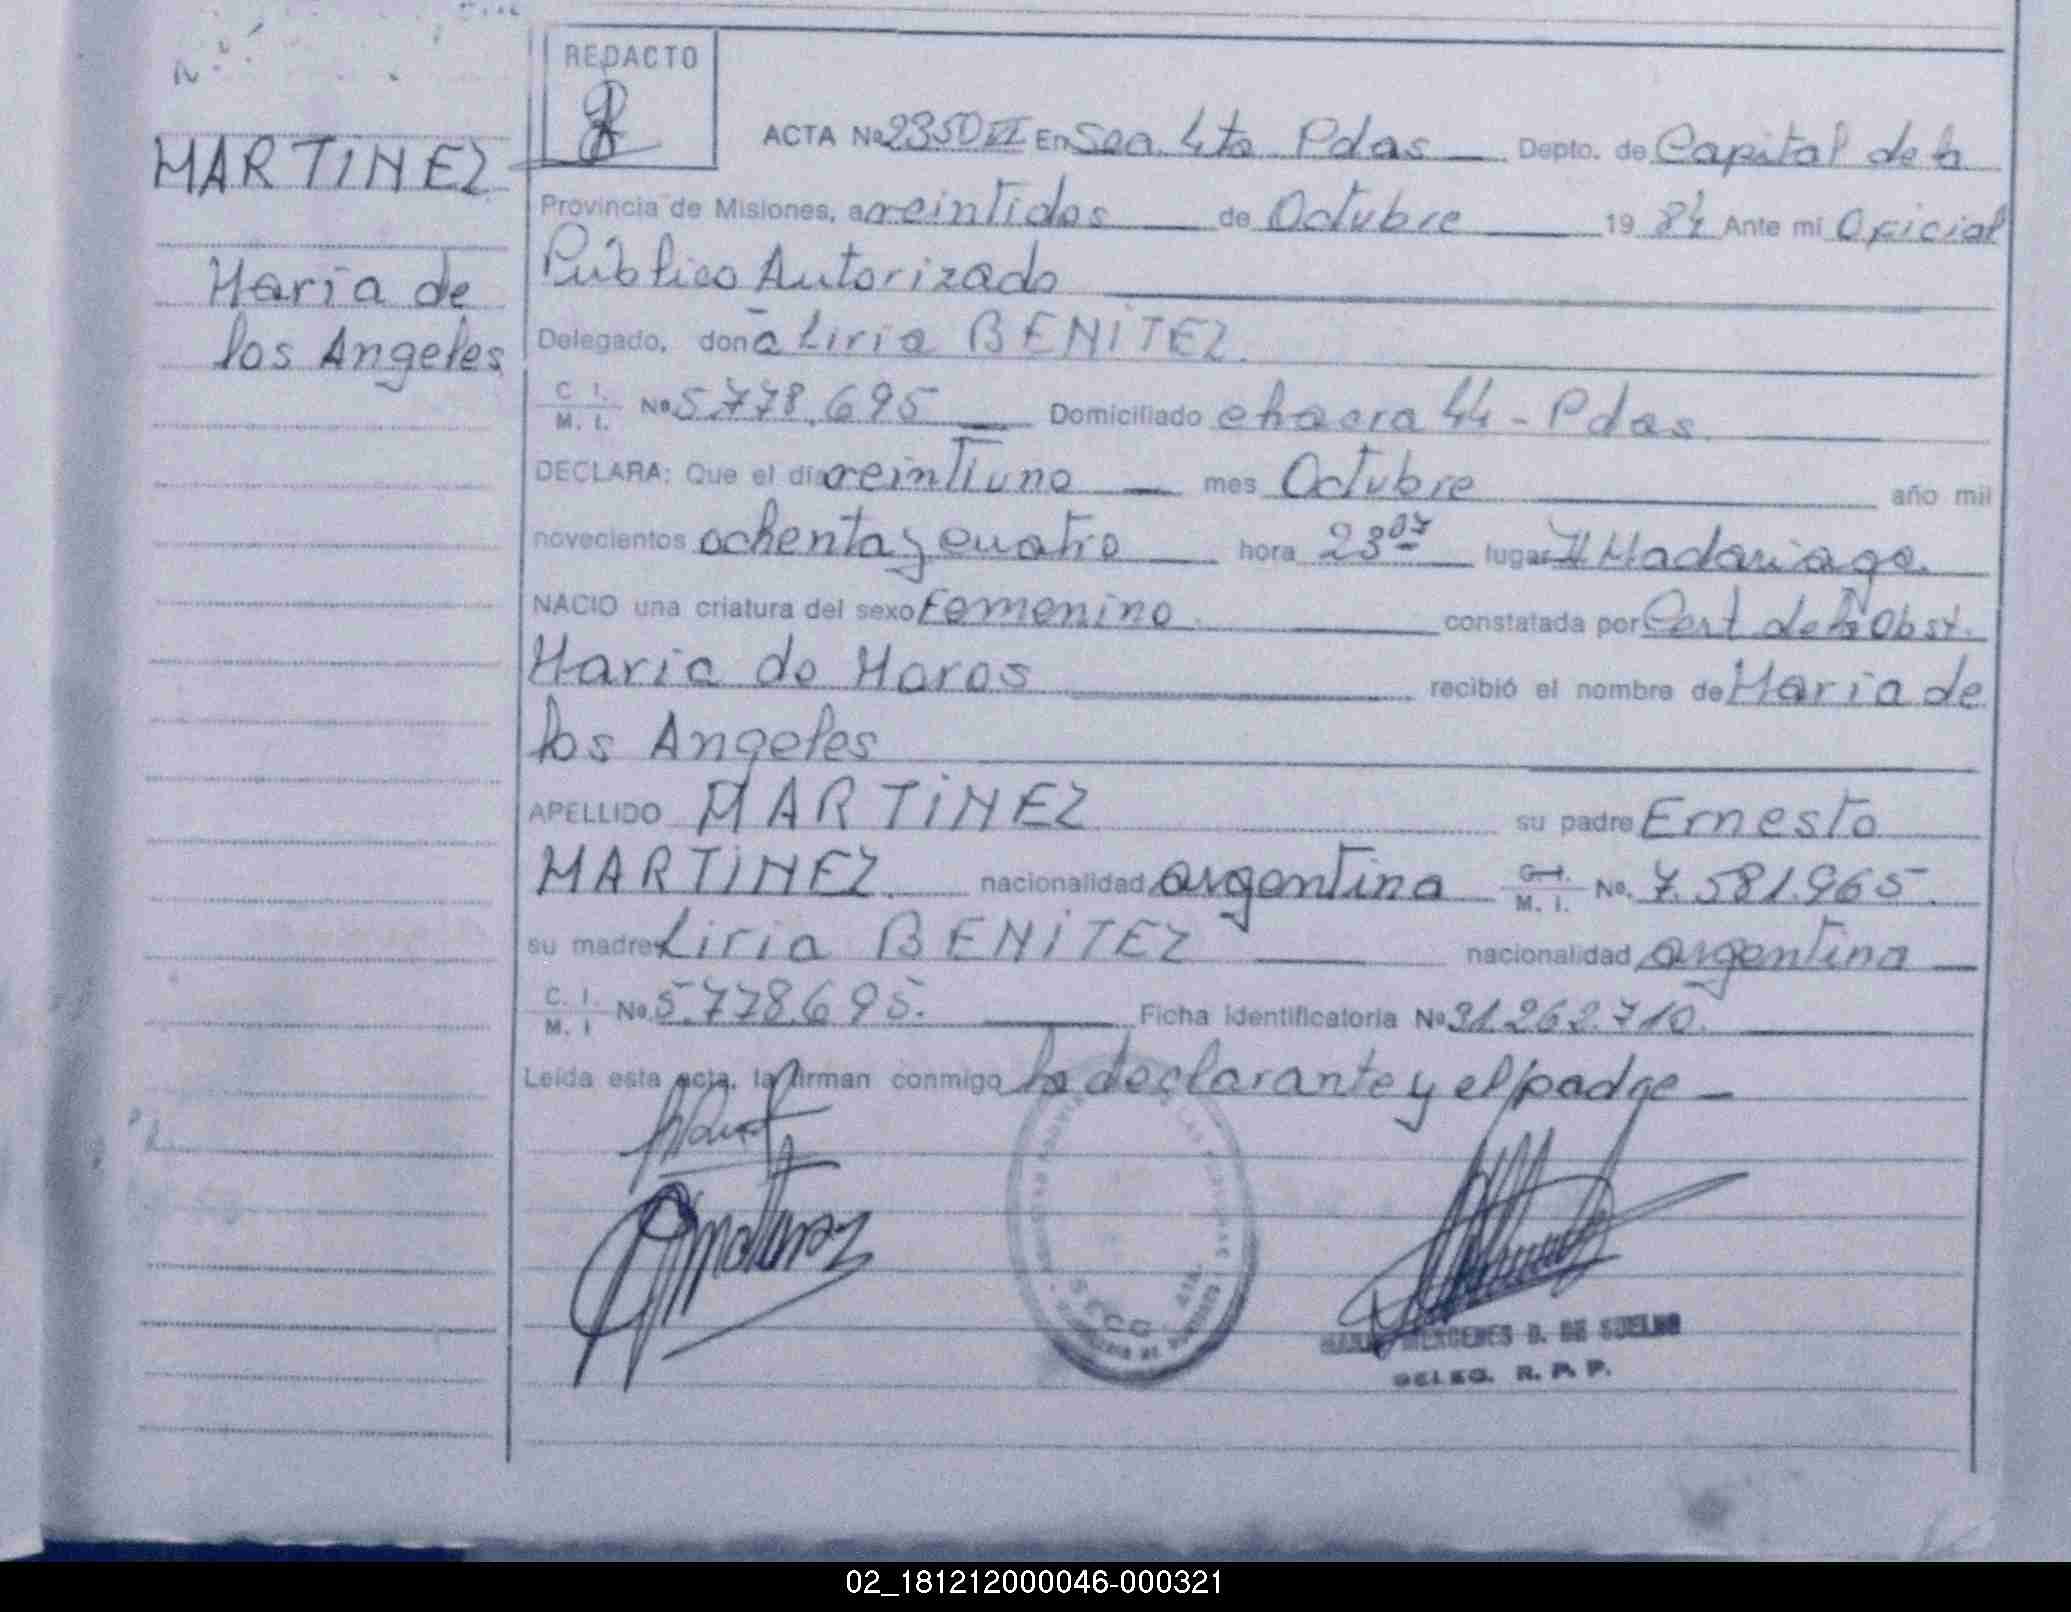 REDACTO
ACTA No 2350 VI En Sea. 4ta Pdas Depto. de Capital de la
MARTINEZ
Provincia de Misiones, a veintidos de Octubre 1984 Ante mi Oficial
Público Autorizado
Maria de
los Angeles
Delegado, doña Liria BENITEZ.
C. I.
M. I. No 5.778.695 Domiciliado chacra 44 - Pdas.
DECLARA: Que el día veintiuno mes Octubre año mil
novecientos ochenta y cuatro hora 23 07 lugar H Madariaga.
NACIO una criatura del sexo Femenino constatada por Cert de la Obst.
Maria de Moros recibió el nombre de Maria de
los Angeles
APELLIDO MARTINEZ su padre Ernesto
MARTINEZ nacionalidad argentina C. I. M. I. No. 7.581.965.
su madre Liria BENITEZ nacionalidad argentina
C. I.
M. I No 5.778.695. Ficha identificatoria No 31.262.710.
Leída esta acta, la firman conmigo la declarante y el padre
S.E.C.C. 4TA.
MERCEDES D. DE SUELDO
DELEG. R. P. P.
02_181212000046-000321